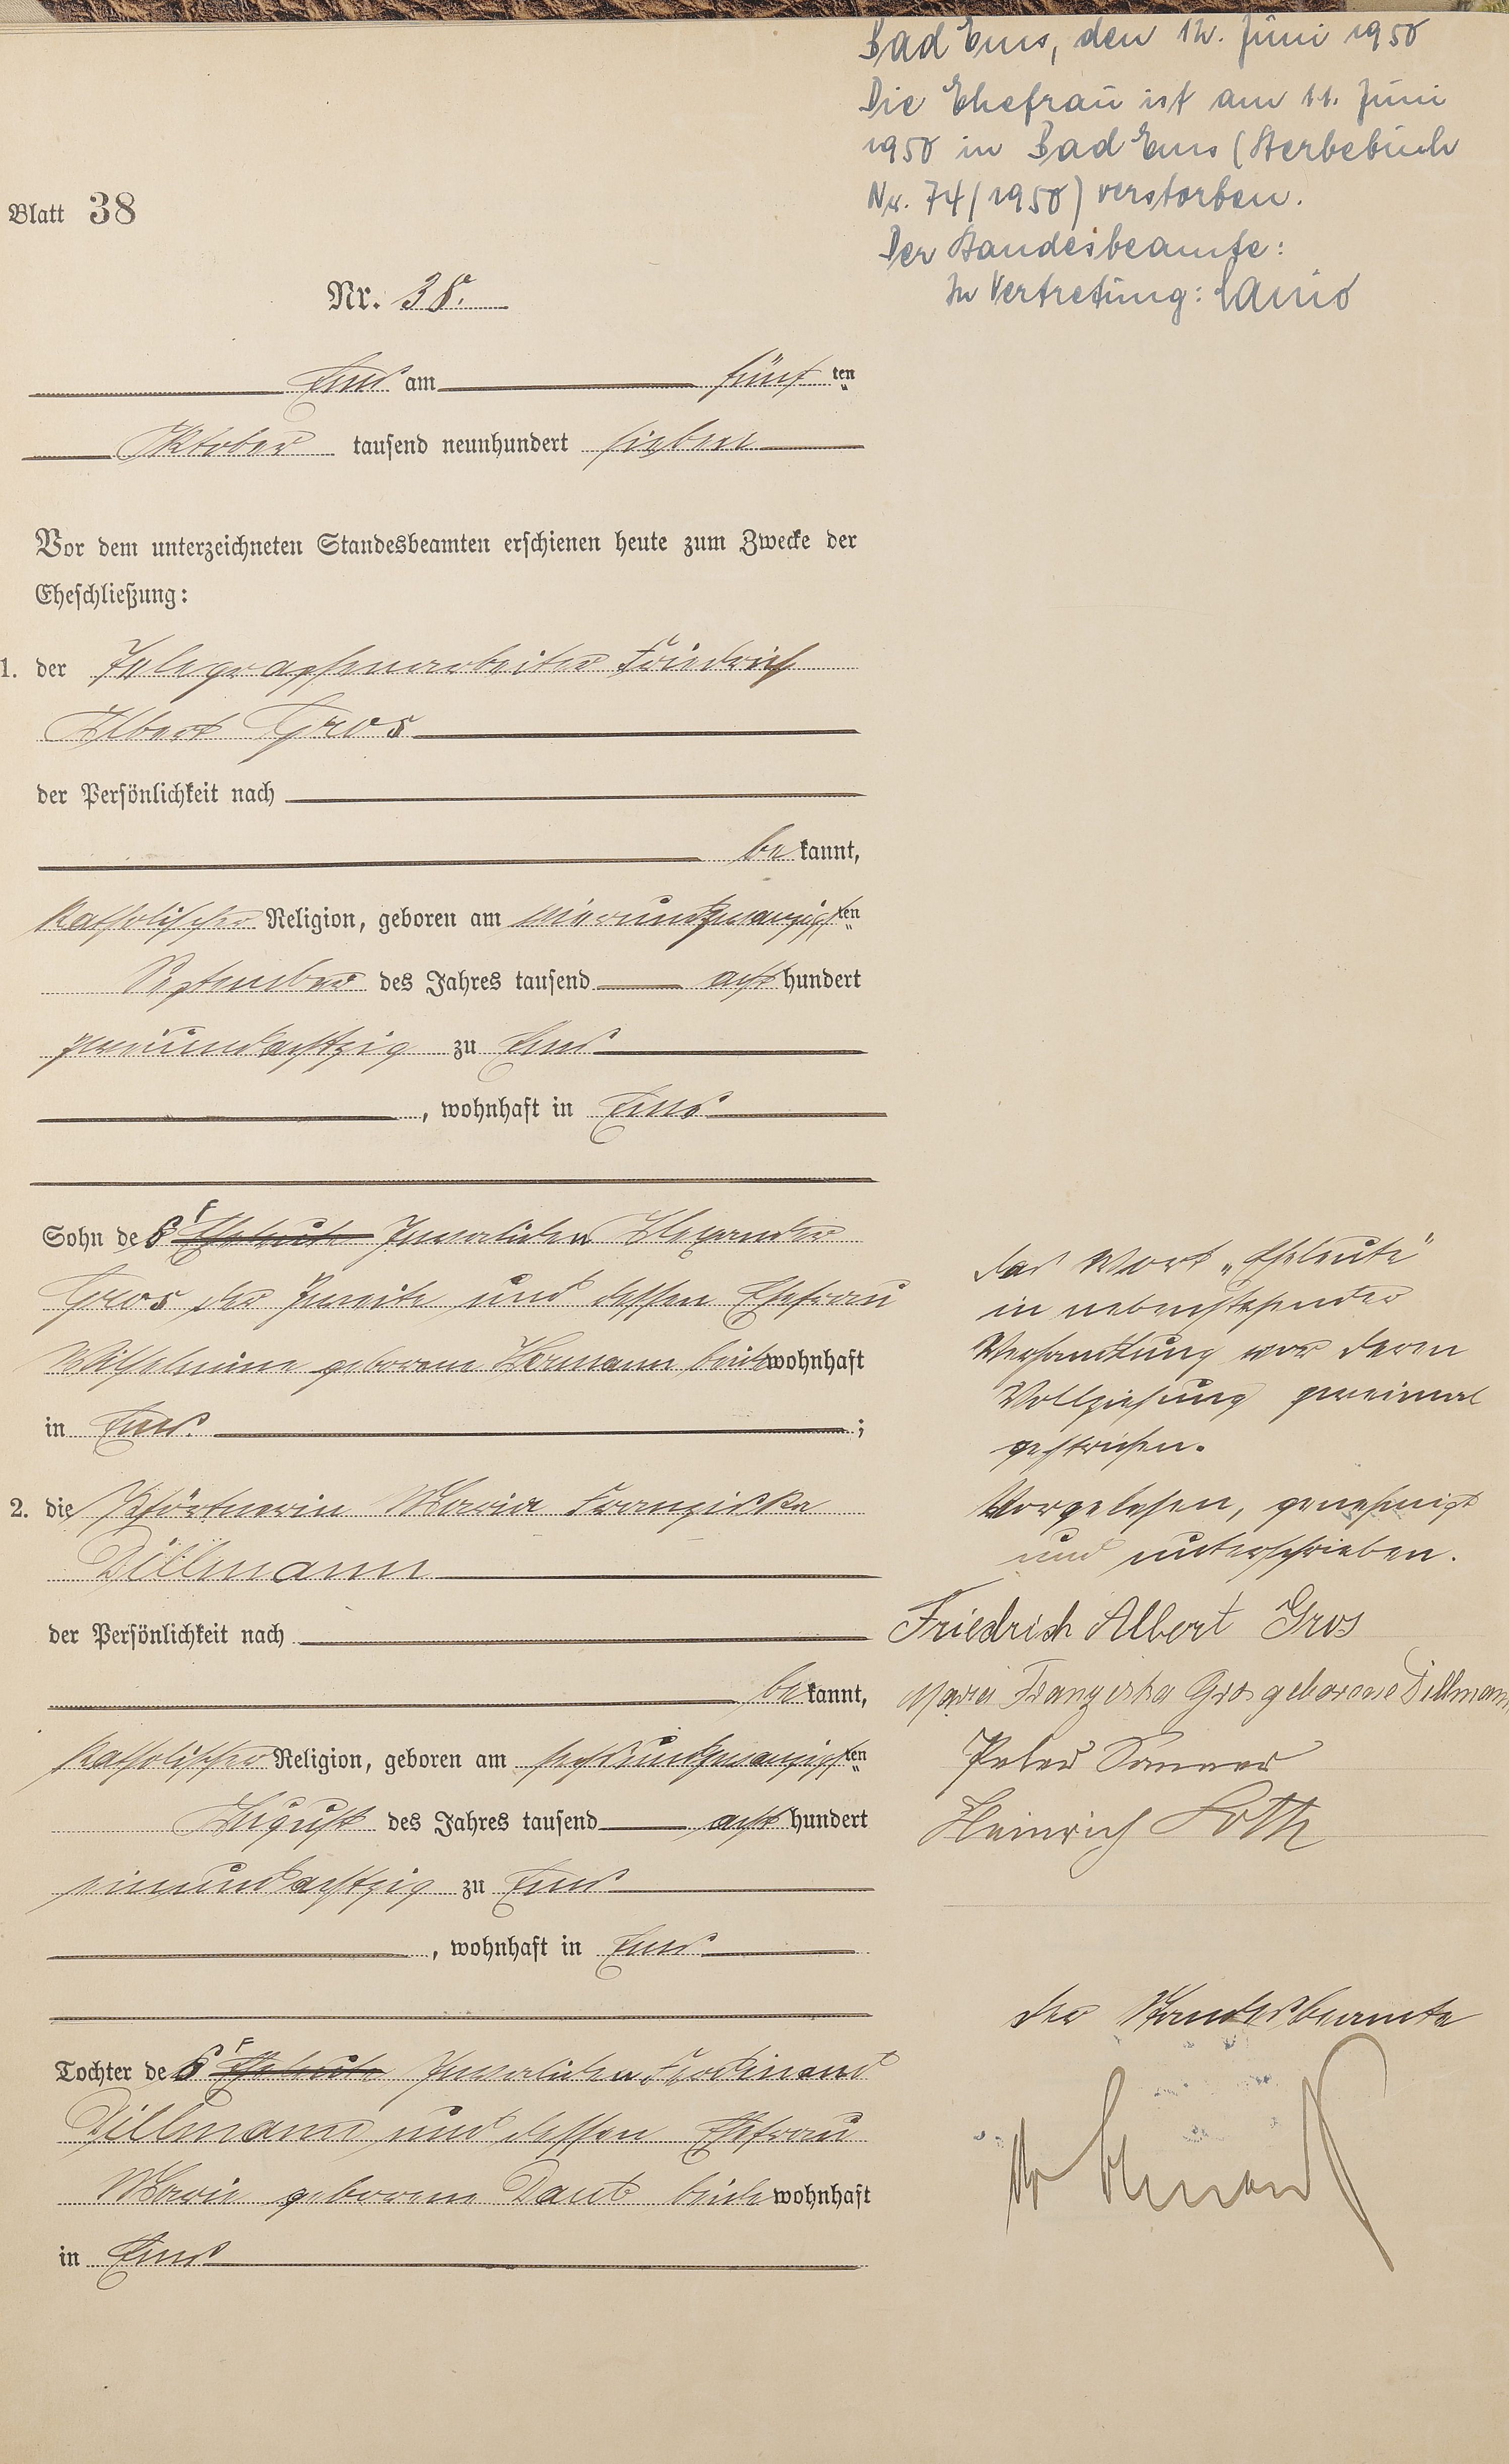 Bad Ems, den 12. Juni 1950
Die Ehefrau ist am 11. Juni
1950 in Bad Ems (Sterbebuch
Nr. 74/1950) verstorben.
Der Standesbeamte:
In Vertretung:
Blatt 38
Nr. 38.
Ems am fünften
Oktober tausend neunhundert sieben
Vor dem unterzeichneten Standesbeamten erschienen heute zum Zwecke der
Eheschließung:
1. der Telegraphenarbeiter Friedrich
Albert Gros
der Persönlichkeit nach
bekannt,
katholischer Religion, geboren am vierundzwanzigsten
September des Jahres tausend achthundert
zweiundachtzig zu Ems
, wohnhaft in Ems
Sohn des Eheleute Invaliden Alexander
Gros der Zweite und dessen Ehefrau
Wilhelmine geborene Hermann beide wohnhaft
in Ems. ;
2. die Pförtnerin Maria Franziska
Dillmann
der Persönlichkeit nach
bekannt,
katholischer Religion, geboren am sechsundzwanzigsten
August des Jahres tausend achthundert
einundachtzig zu Ems
, wohnhaft in Ems
Tochter des Eheleute Invaliden Ferdinand
Dillmann und dessen Ehefrau
Marie geborene Daub beide wohnhaft
in Ems
Das Wort „Eheleute"
in nebenstehender
Verhandlung vor deren
Vollziehung zweimal
gestrichen.
Vorgelesen, genehmigt
und unterschrieben.
Friedrich Albert Gros
Maria Franziska Gros geborene Dillmann
Peter
Heinrich Loth
Der Standesbeamte